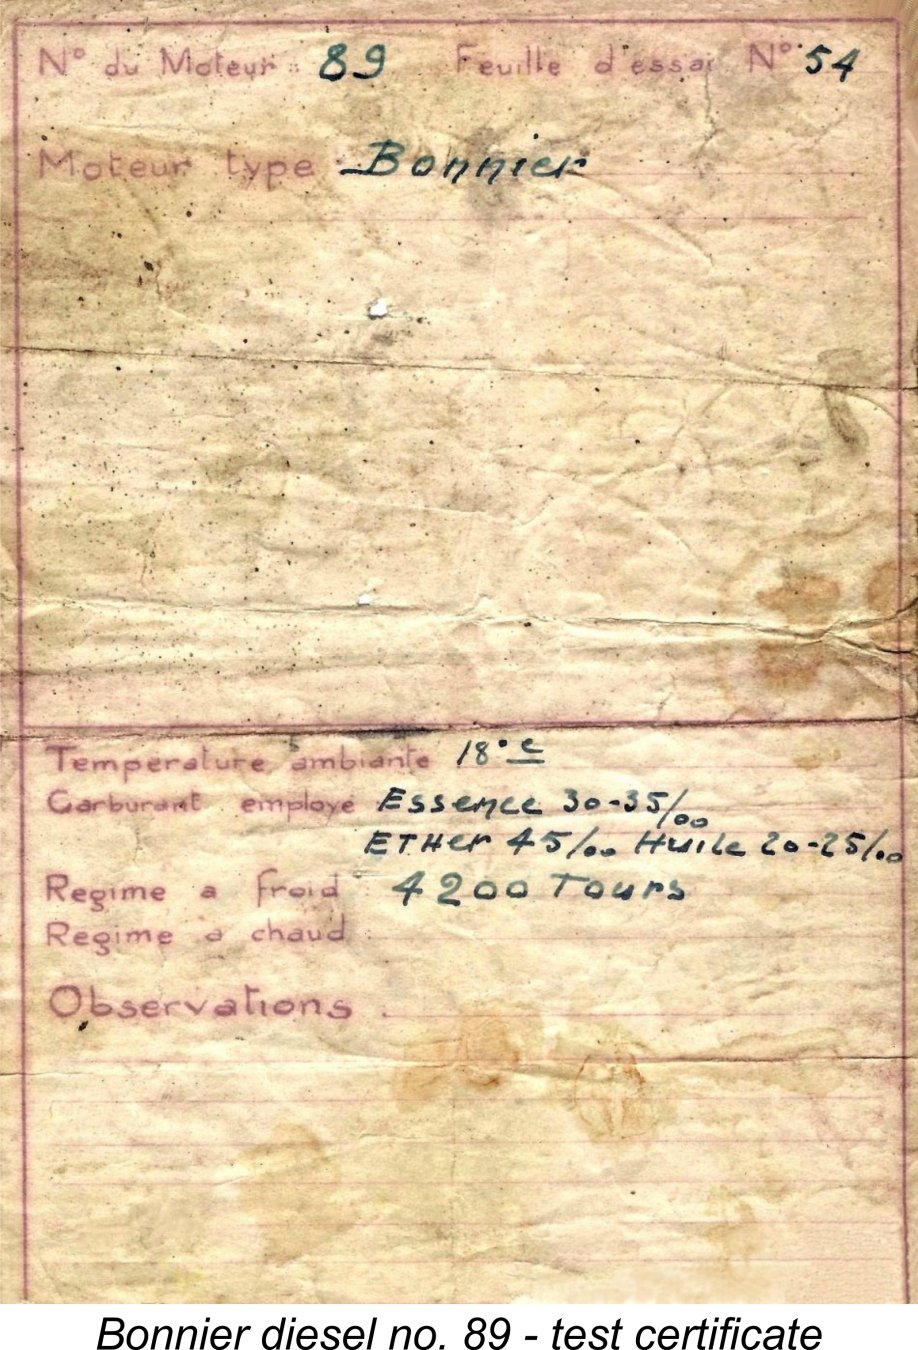 N° du Moteur : 89 Feuille d'essai N° 54
Moteur type : Bonnier
Temperature ambiante 18° c
Carburant employé Essence 30-35/oo
ETHer 45/oo Huile 20-25/oo
Regime a froid 4200 Tours
Regime a chaud :
Observations .
Bonnier diesel no. 89 - test certificate